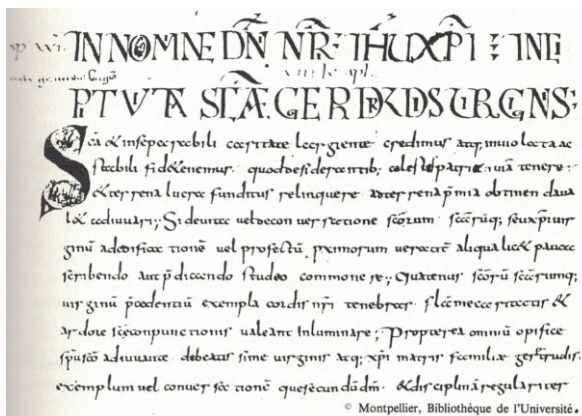 IN NOMINE DN̄I N̄RI IHU XP̄I : INCI
PIT VITA SC̄AE GERDRUDIS VIRGINIS
Sc̄a & inseparabili caritate largiente credimus atq; inuiolata ac
stabili fid& tenemus quod desiderantib; caelestẽ patriã uiã tenere
& terrena lucra funditus relinquere aeterna p̄mia obtinere
lo& adiuuari; Si de uitae uel de conuersatione sc̄orum sc̄arūq; seu xp̄i uir
ginū ad edificationē uel profectū p̄ximorum ueraciter aliqua lic& pauca
scribendo aut p̄dicando studeo commonere; Quatenus sc̄orū sc̄arumq;
uirginū p̄cedentiū exempla cordis n̄ri tenebras flamma caritatis &
ardore sc̄ae conpunctionis ualeant Inluminare; Propterea omniū opifice
sp̄u sc̄o adiuuante de beatissime uirginis atq; xp̄i matris familiae gertrudis
exemplum uel conuersationē que secundū dm̄ & disciplinā regulariter
© Montpellier, Bibliothèque de l'Université.